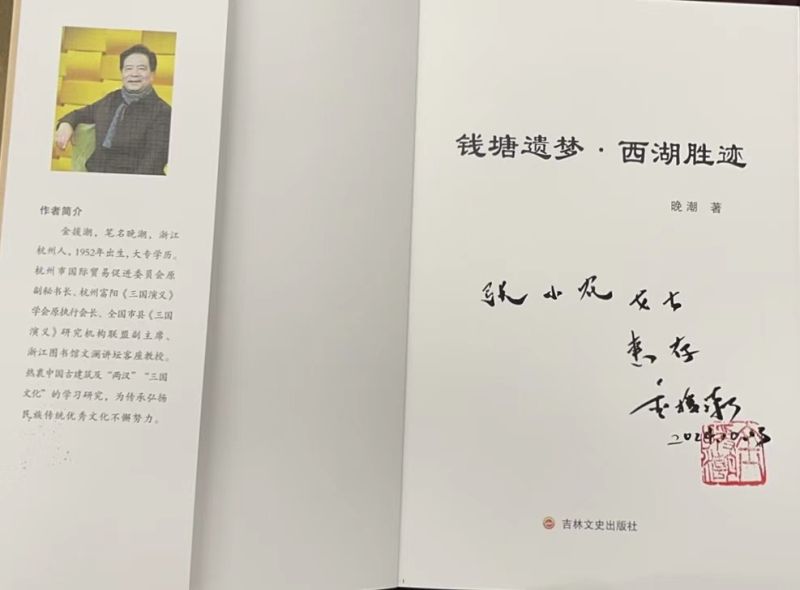 作者简介
金援潮，笔名晚潮，浙江
杭州人，1952年出生，大专学历。
杭州市国际贸易促进委员会原
副秘书长、杭州富阳《三国演义》
学会原执行会长、全国市县《三国
演义》研究机构联盟副主席、
浙江图书馆文澜讲坛客座教授。
热衷中国古建筑及“两汉”“三国
文化”的学习研究，为传承弘扬
民族传统优秀文化不懈努力。
钱塘遗梦·西湖胜迹
晚潮 著
张小
女士
惠存
金援潮
吉林文史出版社